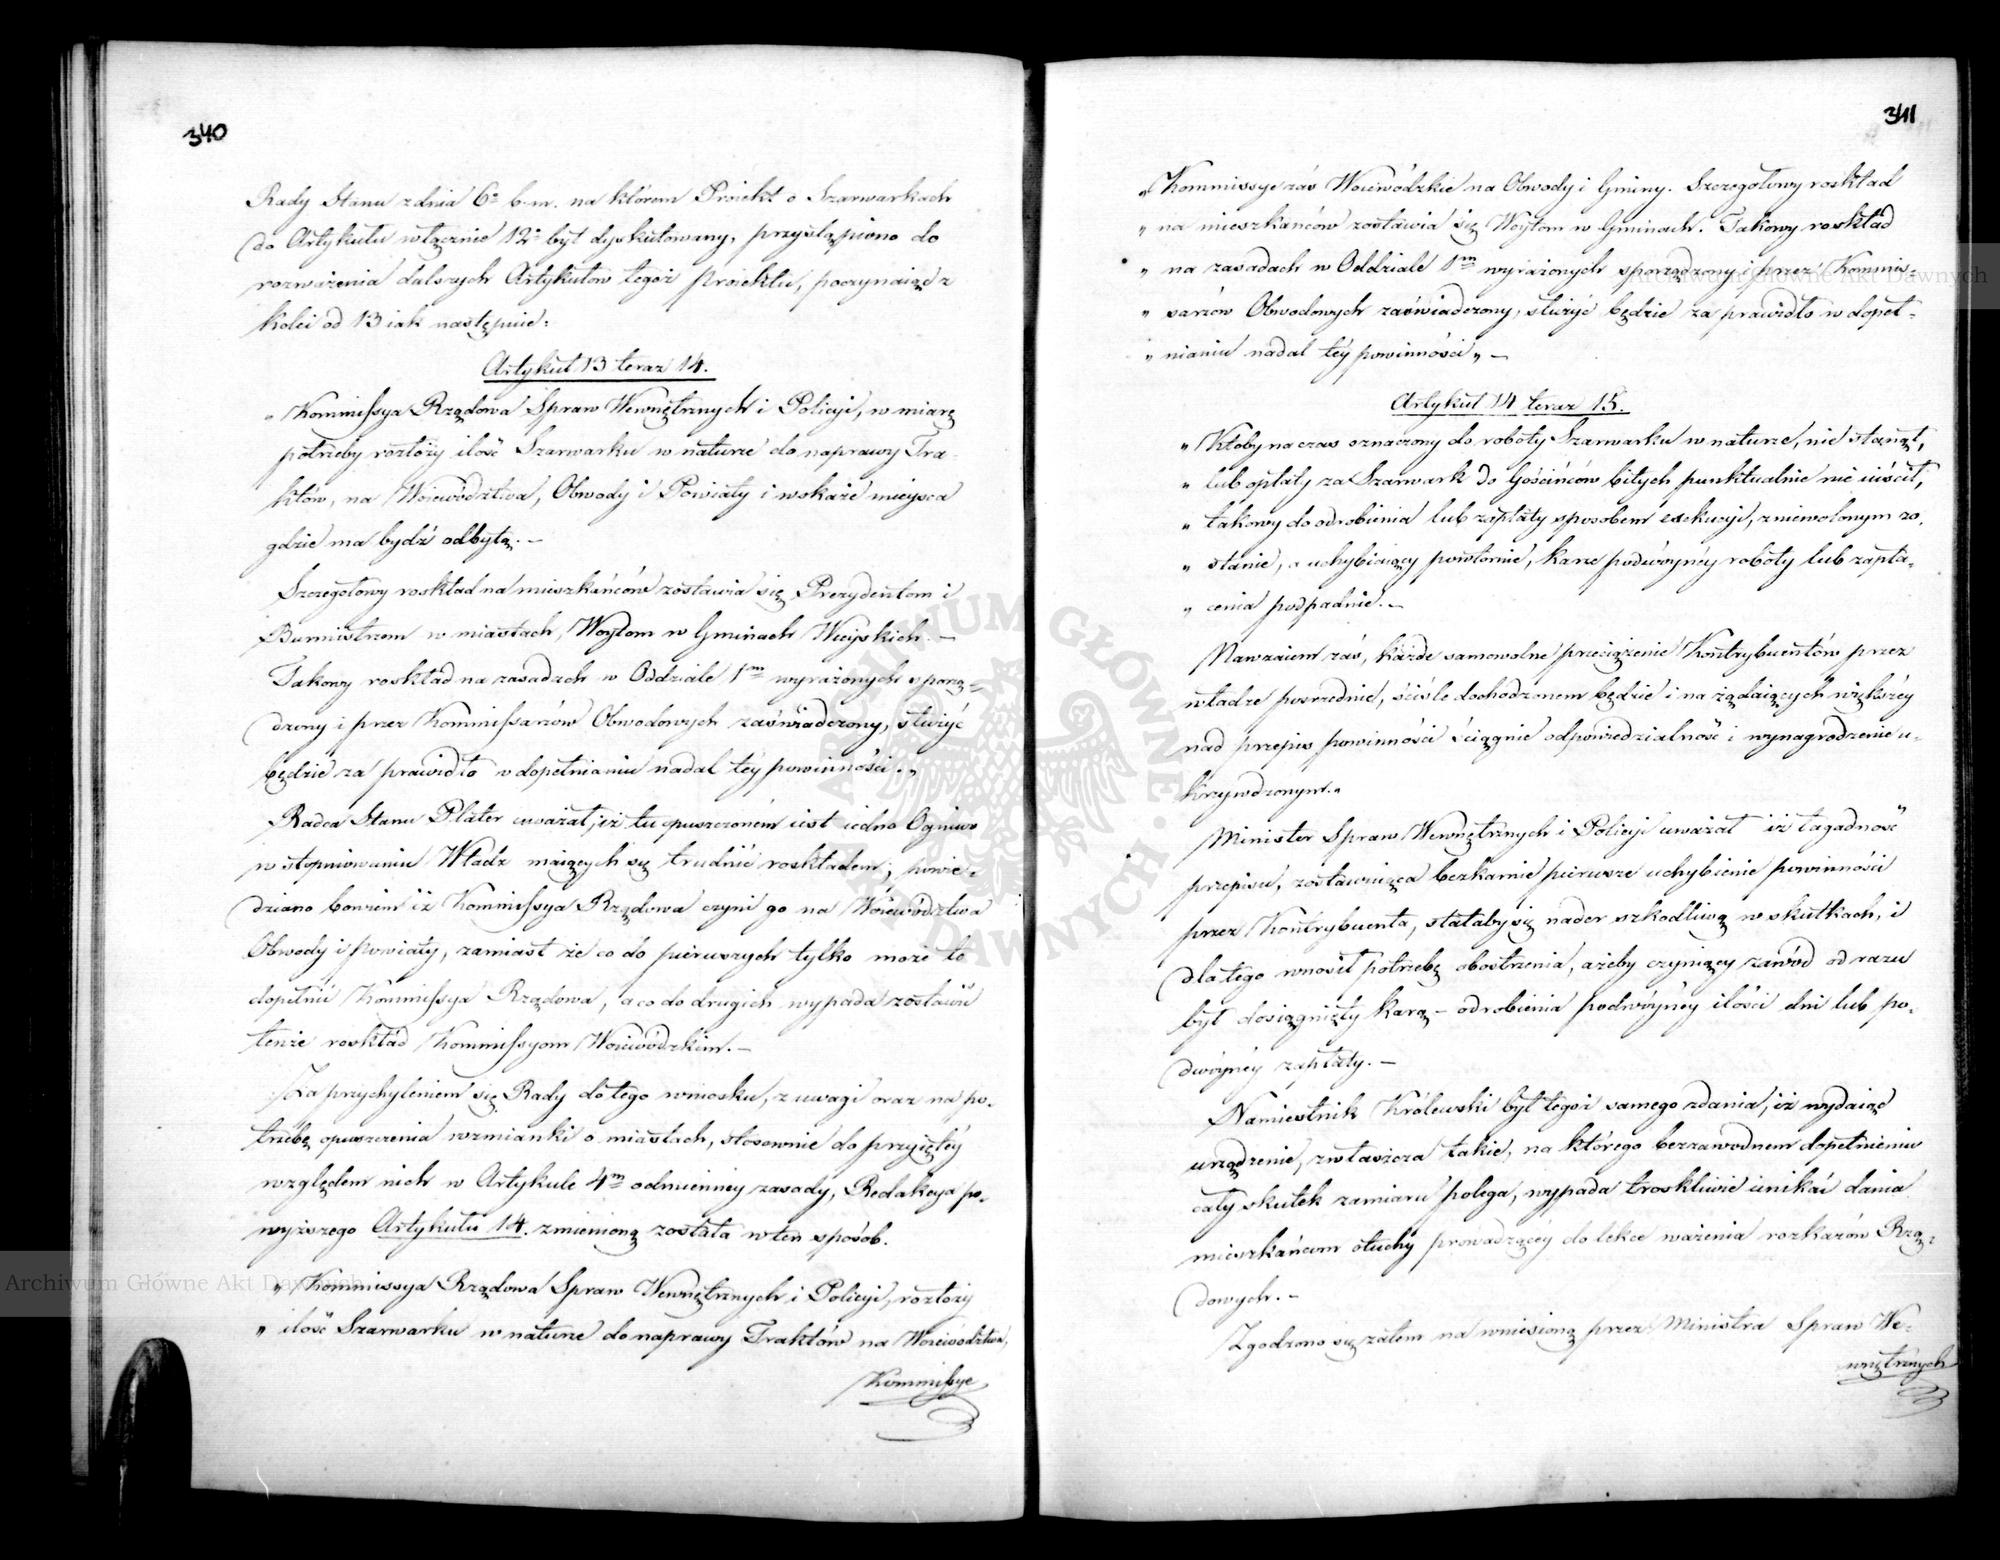 340
Rady Stanu z dnia 6º b. m. na którem Proiekt o Szarwarkach
do Artykułu włącznie 12º był dyskutowany, przystąpiono do
rozważenia dalszych Artykułów tegoż proiektu, poczynaiąc z
kolei od 13 iak następuie:
Artykuł 13 teraz 14.
„ Kommissya Rządowa Spraw Wewnętrznych i Policyi, w miarę
potrzeby rozłoży ilość Szarwarku w naturze do naprawy Tra-
któw, na Woiewództwa, Obwody i Powiaty i wskaże mieysca
gdzie ma bydź odbytą. —
Szczegółowy roskład na mieszkańców zostawia się Prezydentom i
Burmistrzom w miastach, Woytom w Gminach Wieyskich. —
Takowy roskład na zasadach w Oddziale 1m wyrażonych sporzą-
dzony i przez Kommissarzów Obwodowych zaświadczony, służyć
będzie za prawidło w dopełnianiu nadal téy powinności. „
Radca Stanu Plater uważał, iż tu opuszczoném iest iedno Ogniwo
w stopniowaniu Władz maiących się trudnić roskładem; powie-
dziano bowiem iż Kommissya Rządowa czyni go na Woiewództwa
Obwody i powiaty, zamiast że co do pierwszych tylko może to
dopełnić Kommissya Rządowa, a co do drugich wypada zostawić
tenże roskład Kommissyom Woiewódzkim. —
Za przychyleniem się Rady do tego wniosku, z uwagi oraz na po-
trzebę opuszczenia wzmianki o miastach, stosownie do przyiętéy
względem nich w Artykule 4m odmienney zasady, Redakcya po-
wyższego Artykułu 14. zmienioną została w ten sposób.
„ Kommissya Rządowa Spraw Wewnętrznych i Policyi, rozłoży
„ ilość Szarwarku w naturze do naprawy Traktów na Woiewództwa,
Kommissye
341
„ Kommissye zaś Woiewódzkie na Obwody i Gminy. Szczegółowy roskład
„ na mieszkańców zostawia się Woytom w Gminach. Takowy roskład
„ na zasadach w Oddziale 1m wyrażonych sporządzony i przez Kommis-
„ sarzów Obwodowych zaświadczony, służyć będzie za prawidło w dopeł-
„ nianiu nadal téy powinności „ —
Artykuł 14 teraz 15.
„ Ktoby na czas oznaczony do roboty Szarwarku w naturze, nie stanął,
„ lub opłaty za Szarwark do Gościńców bitych punktualnie nie uiścił,
„ takowy do odrobienia lub zapłaty sposobem exekucyi, zniewolonym zo-
„ stanie, a uchybiaiący powtórnie, karze podwóynéy roboty lub zapła-
„ cenia podpadnie. —
Nawzaiem zaś, każde samowolne przeciążenie Kontrybuentów przez
władze posrzednie, ściśle dochodzonem będzie i na żądaiących większéy
nad przepis powinności ściągnie odpowiedzialność i wynagrodzenie u-
krzywdzonym. „
Minister Spraw Wewnętrznych i Policyi uważał iż łagodność
przepisu, zostawuiąca bezkarnie pierwsze uchybienie powinności
przez Kontrybuenta, stałaby się nader szkodliwą w skutkach, i
dla tego wnosił potrzebę obostrzenia, ażeby czyniący zawód od razu
był dosiągnięty karą — odrobienia podwóyney ilości dni lub po-
dwóyney zapłaty. —
Namiestnik Królewski był tegoż samego zdania, iż wydaiąc
urządzenie, zwłaszcza takie, na którego bezzawodnem dopełnieniu
cały skutek zamiaru polega, wypada troskliwie unikać dania
mieszkańcom otuchy prowadzącéy do lekce ważenia rozkazów Rzą-
dowych. —
Zgodzono się zatem na wniesioną przez Ministra Spraw We-
wnętrznych
Archiwum Główne Akt Dawnych
Archiwum Główne Akt Dawnych
ARCHIWUM GŁÓWNE AKT DAWNYCH